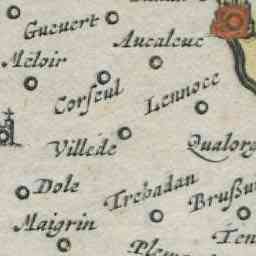 Gueuert
Aucaleuc
Meloir
Corseul
Lennoce
Villede
Qualorg
Dole
Trebadan
Brußu
Maigrin
Ten
Plem